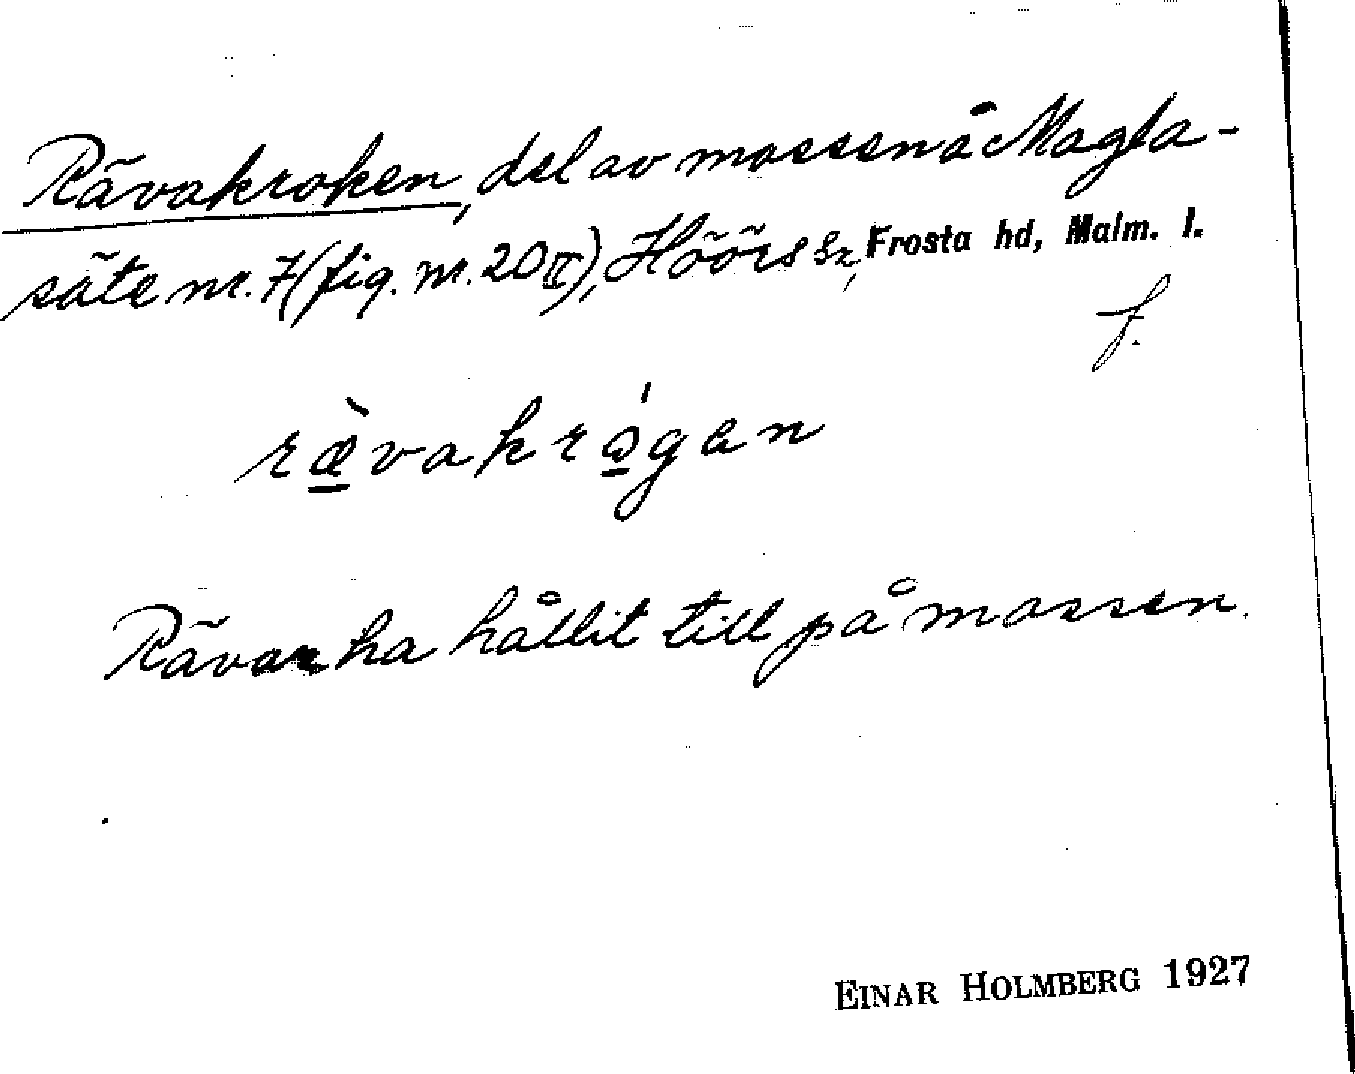 Rävakroken, del av mossen å Magla-
säte nr. 7 (fig. nr. 20 II), Höörs sn, Frosta hd, Malm. l.
f.
rævakrogen
Rävar ha hållit till på mossen.
EINAR HOLMBERG 1927